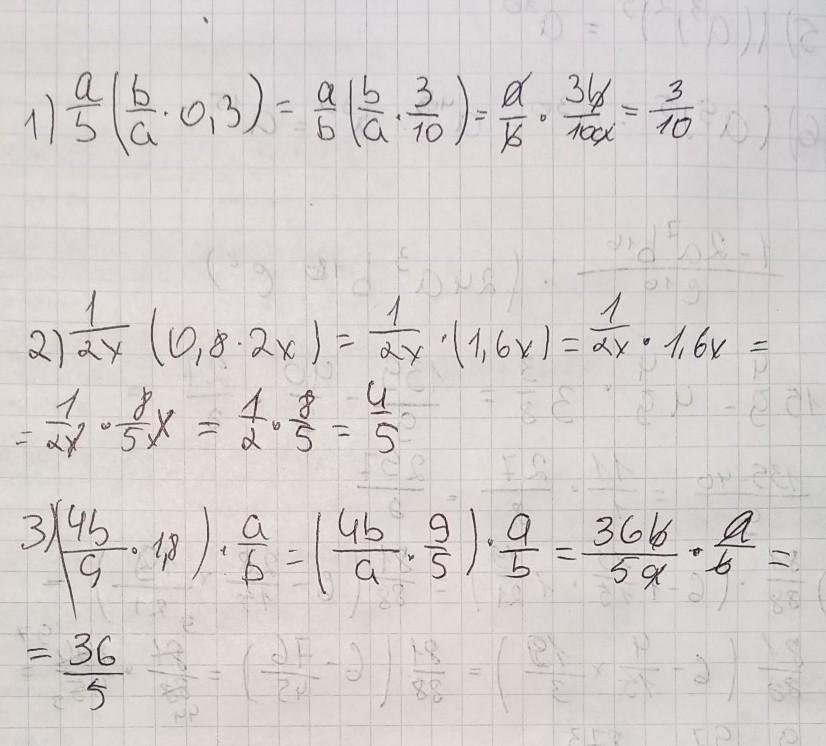 1) a/b (b/a · 0,3) = a/b (b/a · 3/10) = a/b · 3b/10a = 3/10
2) 1/2x (0,8 · 2x) = 1/2x · (1,6x) = 1/2x · 1,6x =
= 1/2x · 8/5 x = 1/2 · 8/5 = 4/5
3) (4b/a · 1,8) · a/b = (4b/a · 9/5) · a/b = 36b/5a · a/b =
= 36/5